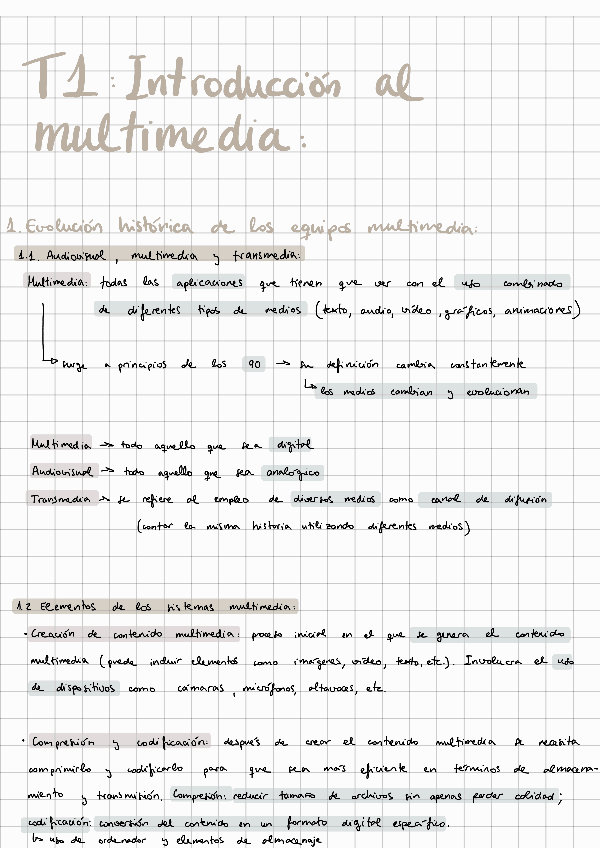 T1: Introducción al
multimedia:
1. Evolución histórica de los equipos multimedia:
1.1. Audiovisual, multimedia y transmedia:
Multimedia: todas las aplicaciones que tienen que ver con el uso combinado
de diferentes tipos de medios (texto, audio, vídeo, gráficos, animaciones)
↳ surge a principios de los 90 → su definición cambia constantemente
↳ los medios cambian y evolucionan
Multimedia → todo aquello que sea digital
Audiovisual → todo aquello que sea analógico
Transmedia → se refiere al empleo de diversos medios como canal de difusión
(contar la misma historia utilizando diferentes medios)
1.2 Elementos de los sistemas multimedia:
· Creación de contenido multimedia: proceso inicial en el que se genera el contenido
multimedia (puede incluir elementos como imágenes, vídeo, texto, etc.). Involucra el uso
de dispositivos como cámaras, micrófonos, altavoces, etc.
· Compresión y codificación: después de crear el contenido multimedia se necesita
comprimirlo y codificarlo para que sea más eficiente en términos de almacena-
miento y transmisión. Compresión: reducir tamaño de archivos sin apenas perder calidad;
codificación: conversión del contenido en un formato digital específico.
↳ uso de ordenador y elementos de almacenaje